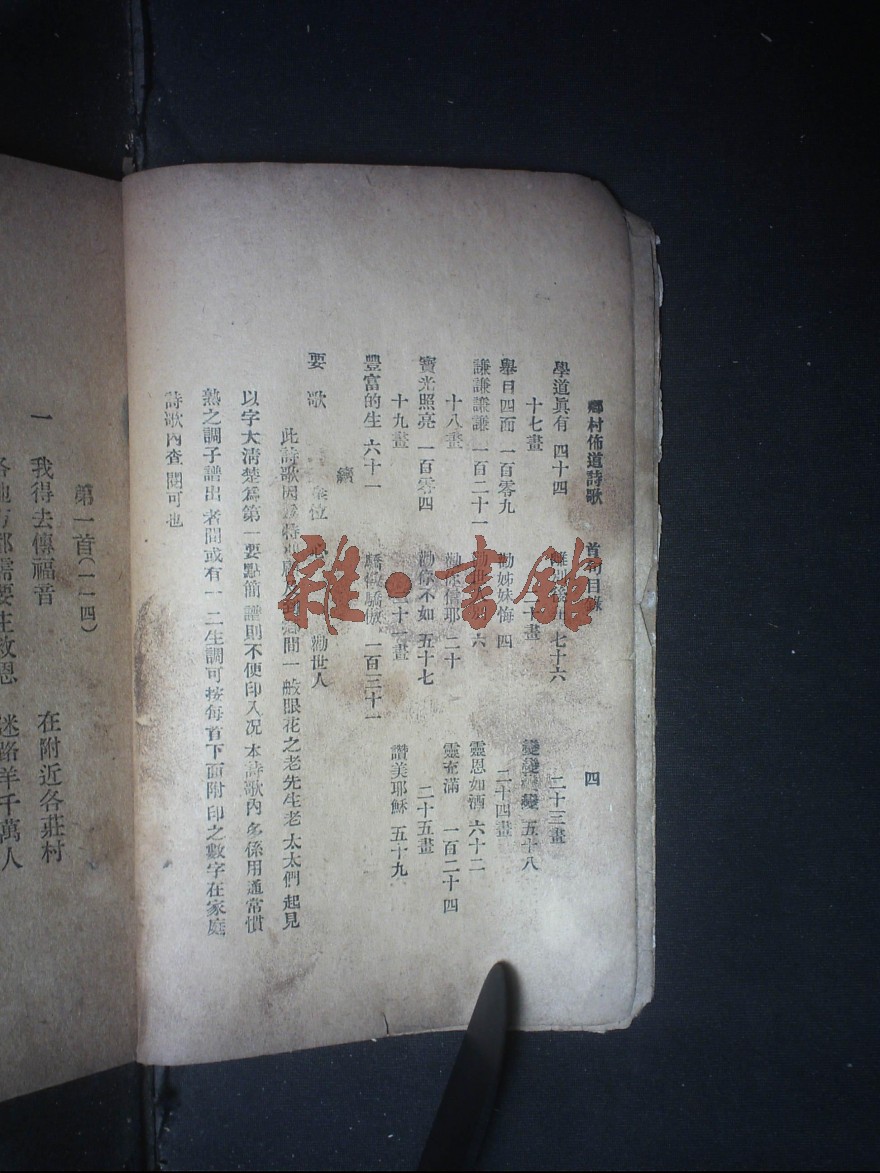 鄉村佈道詩歌 首句目錄 四
學道眞有 四十四
十七畫
舉目四面 一百零九
謙謙謙謙 一百二十一
十八畫
寶光照亮 一百零四
十九畫
豐富的生 六十一
七十六
二十畫
勸姊妹悔 四
勸世人 六
勸你信耶 二十
勸你不如 五十七
二十一畫
驕傲驕傲 一百三十一
二十三畫
五十八
二十四畫
靈恩如酒 六十二
靈充滿 一百二十四
二十五畫
讚美耶穌 五十九
續
要歌 位 勸世人
此詩歌因 特 鄉間一般眼花之老先生老太太們起見
以字大清楚爲第一要點簡譜則不便印入况本詩歌內多係用通常慣
熟之調子譜出者間或有一二生調可按每首下面附印之數字在家庭
詩歌內查閱可也
第一首(一一四)
一 我得去傳福音 在附近各莊村
各地方都需要主救恩 迷路羊千萬人
雜·書館